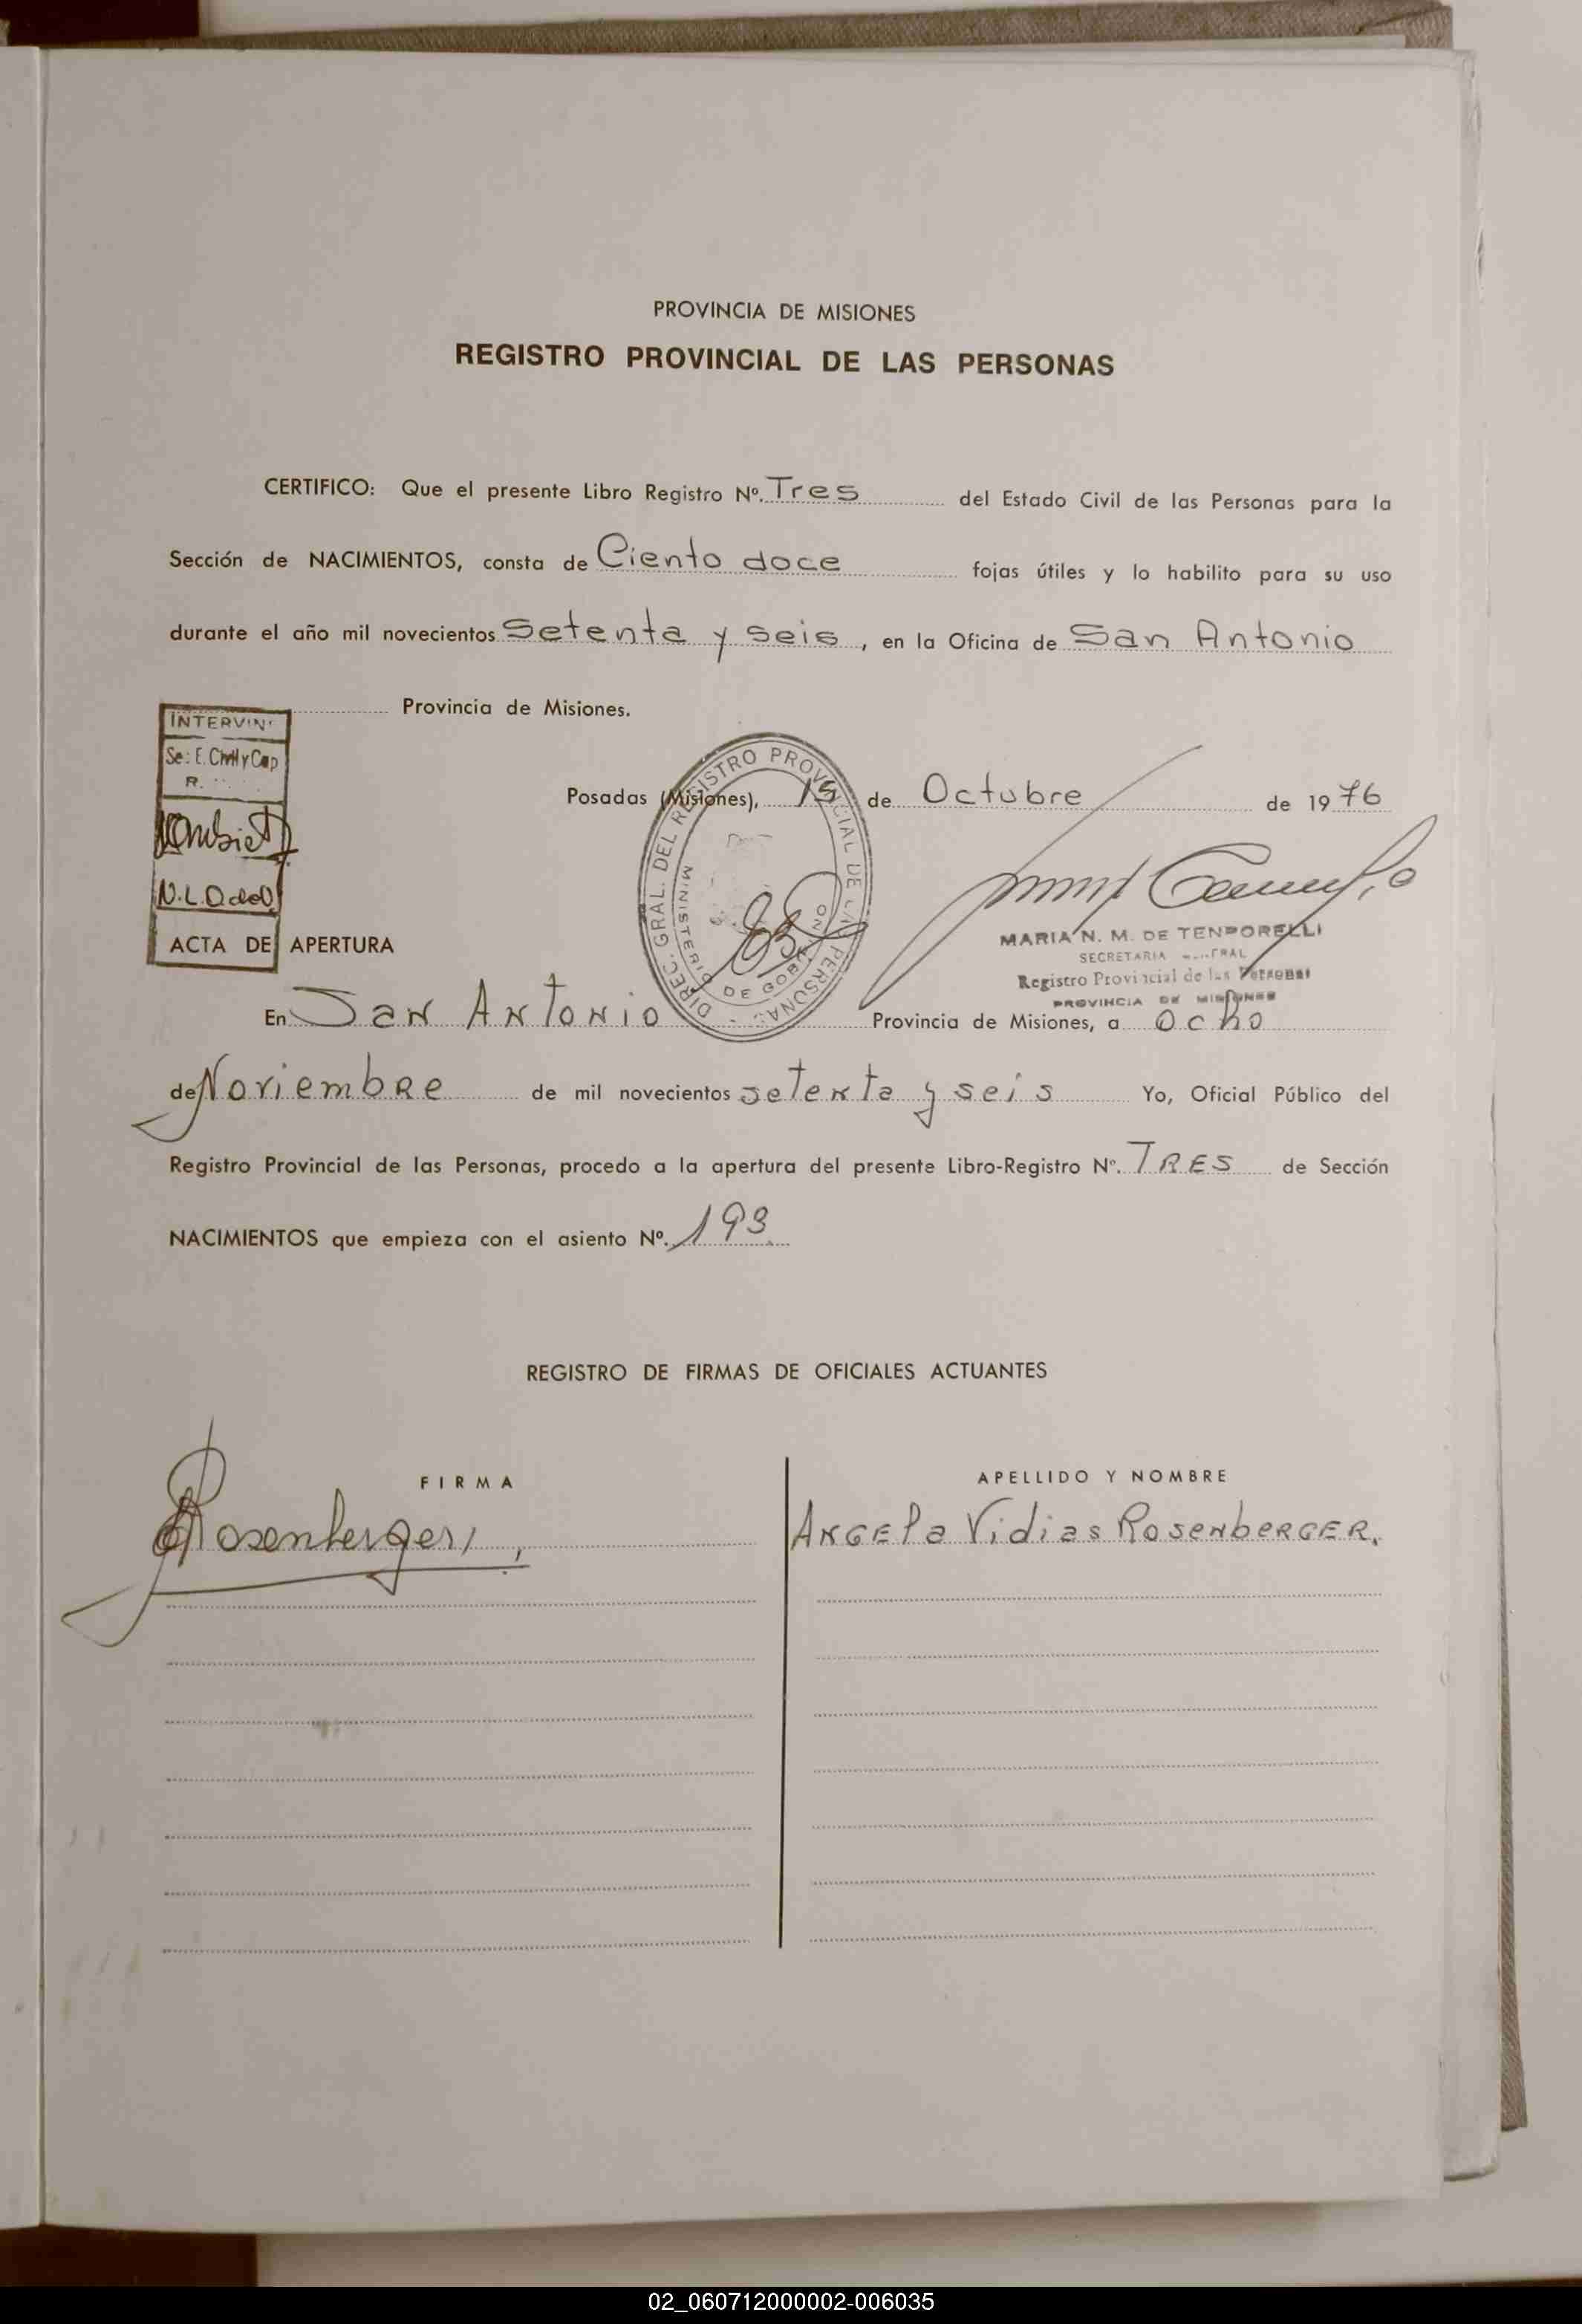 PROVINCIA DE MISIONES
REGISTRO PROVINCIAL DE LAS PERSONAS
CERTIFICO: Que el presente Libro Registro Nº. Tres del Estado Civil de las Personas para la
Sección de NACIMIENTOS, consta de Ciento doce fojas útiles y lo habilito para su uso
durante el año mil novecientos Setenta y seis, en la Oficina de San Antonio
Provincia de Misiones.
INTERVIN
Se: E. Civil y Cap
R.
Posadas (Misiones), 15 de Octubre de 1976
DIREC. GRAL. DEL REGISTRO PROVINCIAL DE LAS PERSONAS -
MINISTERIO DE GOBIERNO
MARIA N. M. DE TENPORELLI
SECRETARIA
Registro Provincial de las Personas
PROVINCIA DE MISIONES
ACTA DE APERTURA
En San Antonio Provincia de Misiones, a ocho
de Noviembre de mil novecientos setenta y seis Yo, Oficial Público del
Registro Provincial de las Personas, procedo a la apertura del presente Libro-Registro Nº. TRES de Sección
NACIMIENTOS que empieza con el asiento Nº. 193.
REGISTRO DE FIRMAS DE OFICIALES ACTUANTES
FIRMA
APELLIDO Y NOMBRE
Rosenberger
Angela Vidias Rosenberger.
02_060712000002-006035